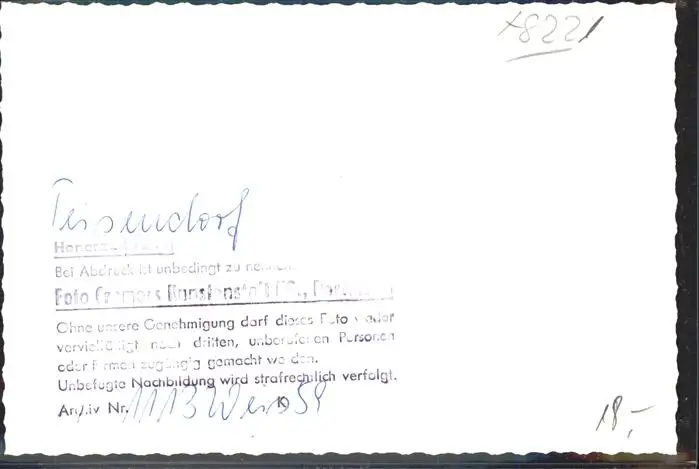 8221
Teisendorf
Bei Abdruck ist unbedingt zu nennen:
Foto
Ohne unsere Genehmigung darf dieses Foto weder
vervielfältigt noch dritten, unberufenen Personen
oder Firmen zugängig gemacht werden.
Unbefugte Nachbildung wird strafrechtlich verfolgt.
Archiv Nr. 1113
18,-